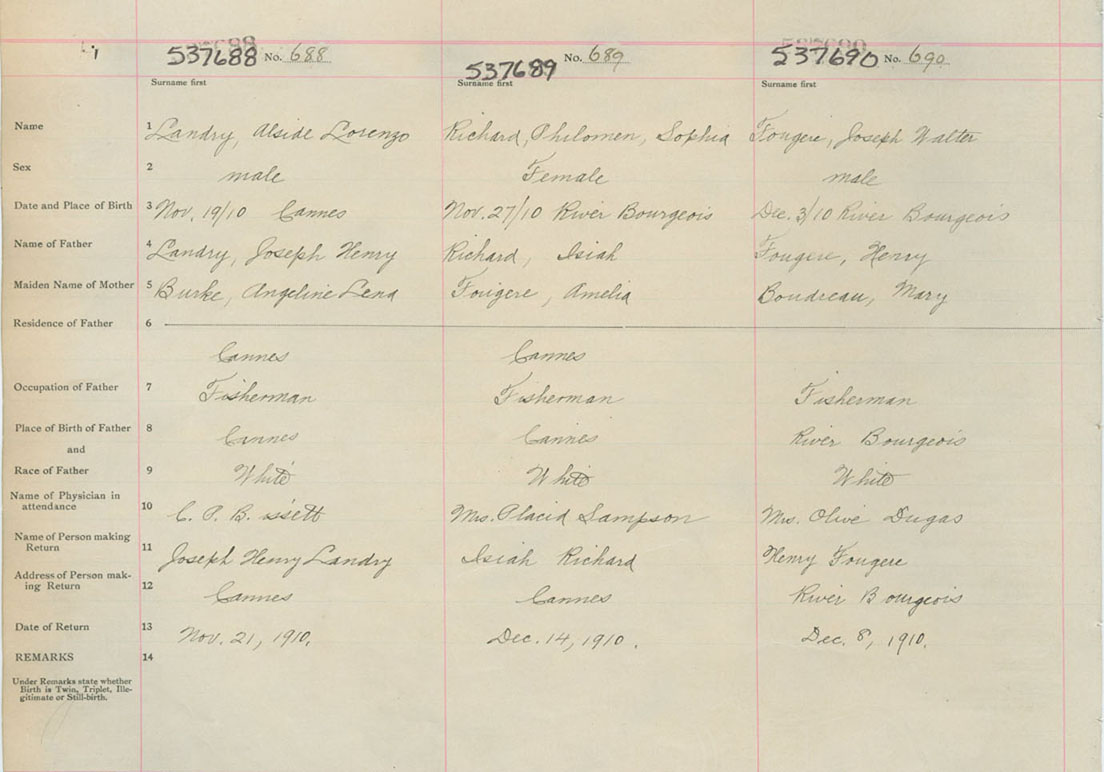 537688 No. 688 537689 No. 689 537690 No. 690
Surname first Surname first Surname first
Name 1 Landry, Alside Lorenzo Richard, Philomen, Sophia Fougere, Joseph Walter
Sex 2 male Female male
Date and Place of Birth 3 Nov. 19/10 Cannes Nov. 27/10 River Bourgeois Dec. 3/10 River Bourgeois
Name of Father 4 Landry, Joseph Henry Richard, Isiah Fougere, Henry
Maiden Name of Mother 5 Burke, Angeline Lena Fougere, Amelia Boudreau, Mary
Residence of Father 6
Cannes Cannes
Occupation of Father 7 Fisherman Fisherman Fisherman
Place of Birth of Father 8 Cannes Cannes River Bourgeois
and
Race of Father 9 White White White
Name of Physician in
attendance 10 C. P. Bissett Mrs. Placid Sampson Mrs. Olive Dugas
Name of Person making
Return 11 Joseph Henry Landry Isiah Richard Henry Fougere
Address of Person mak-
ing Return 12 Cannes Cannes River Bourgeois
Date of Return 13 Nov. 21, 1910. Dec. 14, 1910. Dec. 8, 1910.
REMARKS 14
Under Remarks state whether
Birth is Twin, Triplet, Ille-
gitimate or Still-birth.